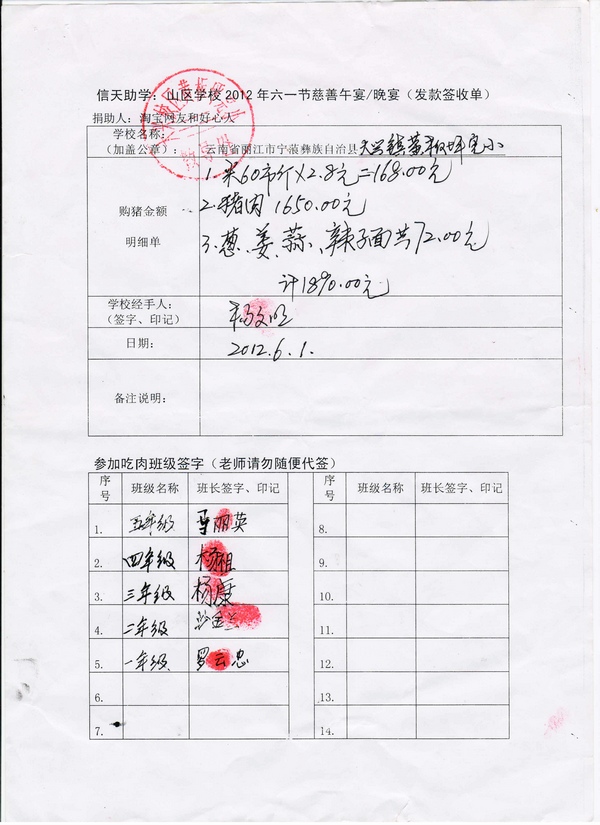 信天助学：山区学校2012年六一节慈善午宴/晚宴（发款签收单）
捐助人：淘宝网友和好心人
学校名称：
（加盖公章）： 云南省丽江市宁蒗彝族自治县 完小
购猪金额
明细单
1.米60市斤×2.8元=168.00元
2.猪肉 1650.00元
3.葱、姜、蒜、辣子面共72.00元
计1890.00元
学校经手人：
（签字、印记）
日期： 2012.6.1.
备注说明：
参加吃肉班级签字（老师请勿随便代签）
序号 班级名称 班长签字、印记 序号 班级名称 班长签字、印记
1. 五年级 马丽英 8.
2. 四年级 杨祖 9.
3. 三年级 杨康 10.
4. 二年级 11.
5. 一年级 罗云忠 12.
6. 13.
7. 14.